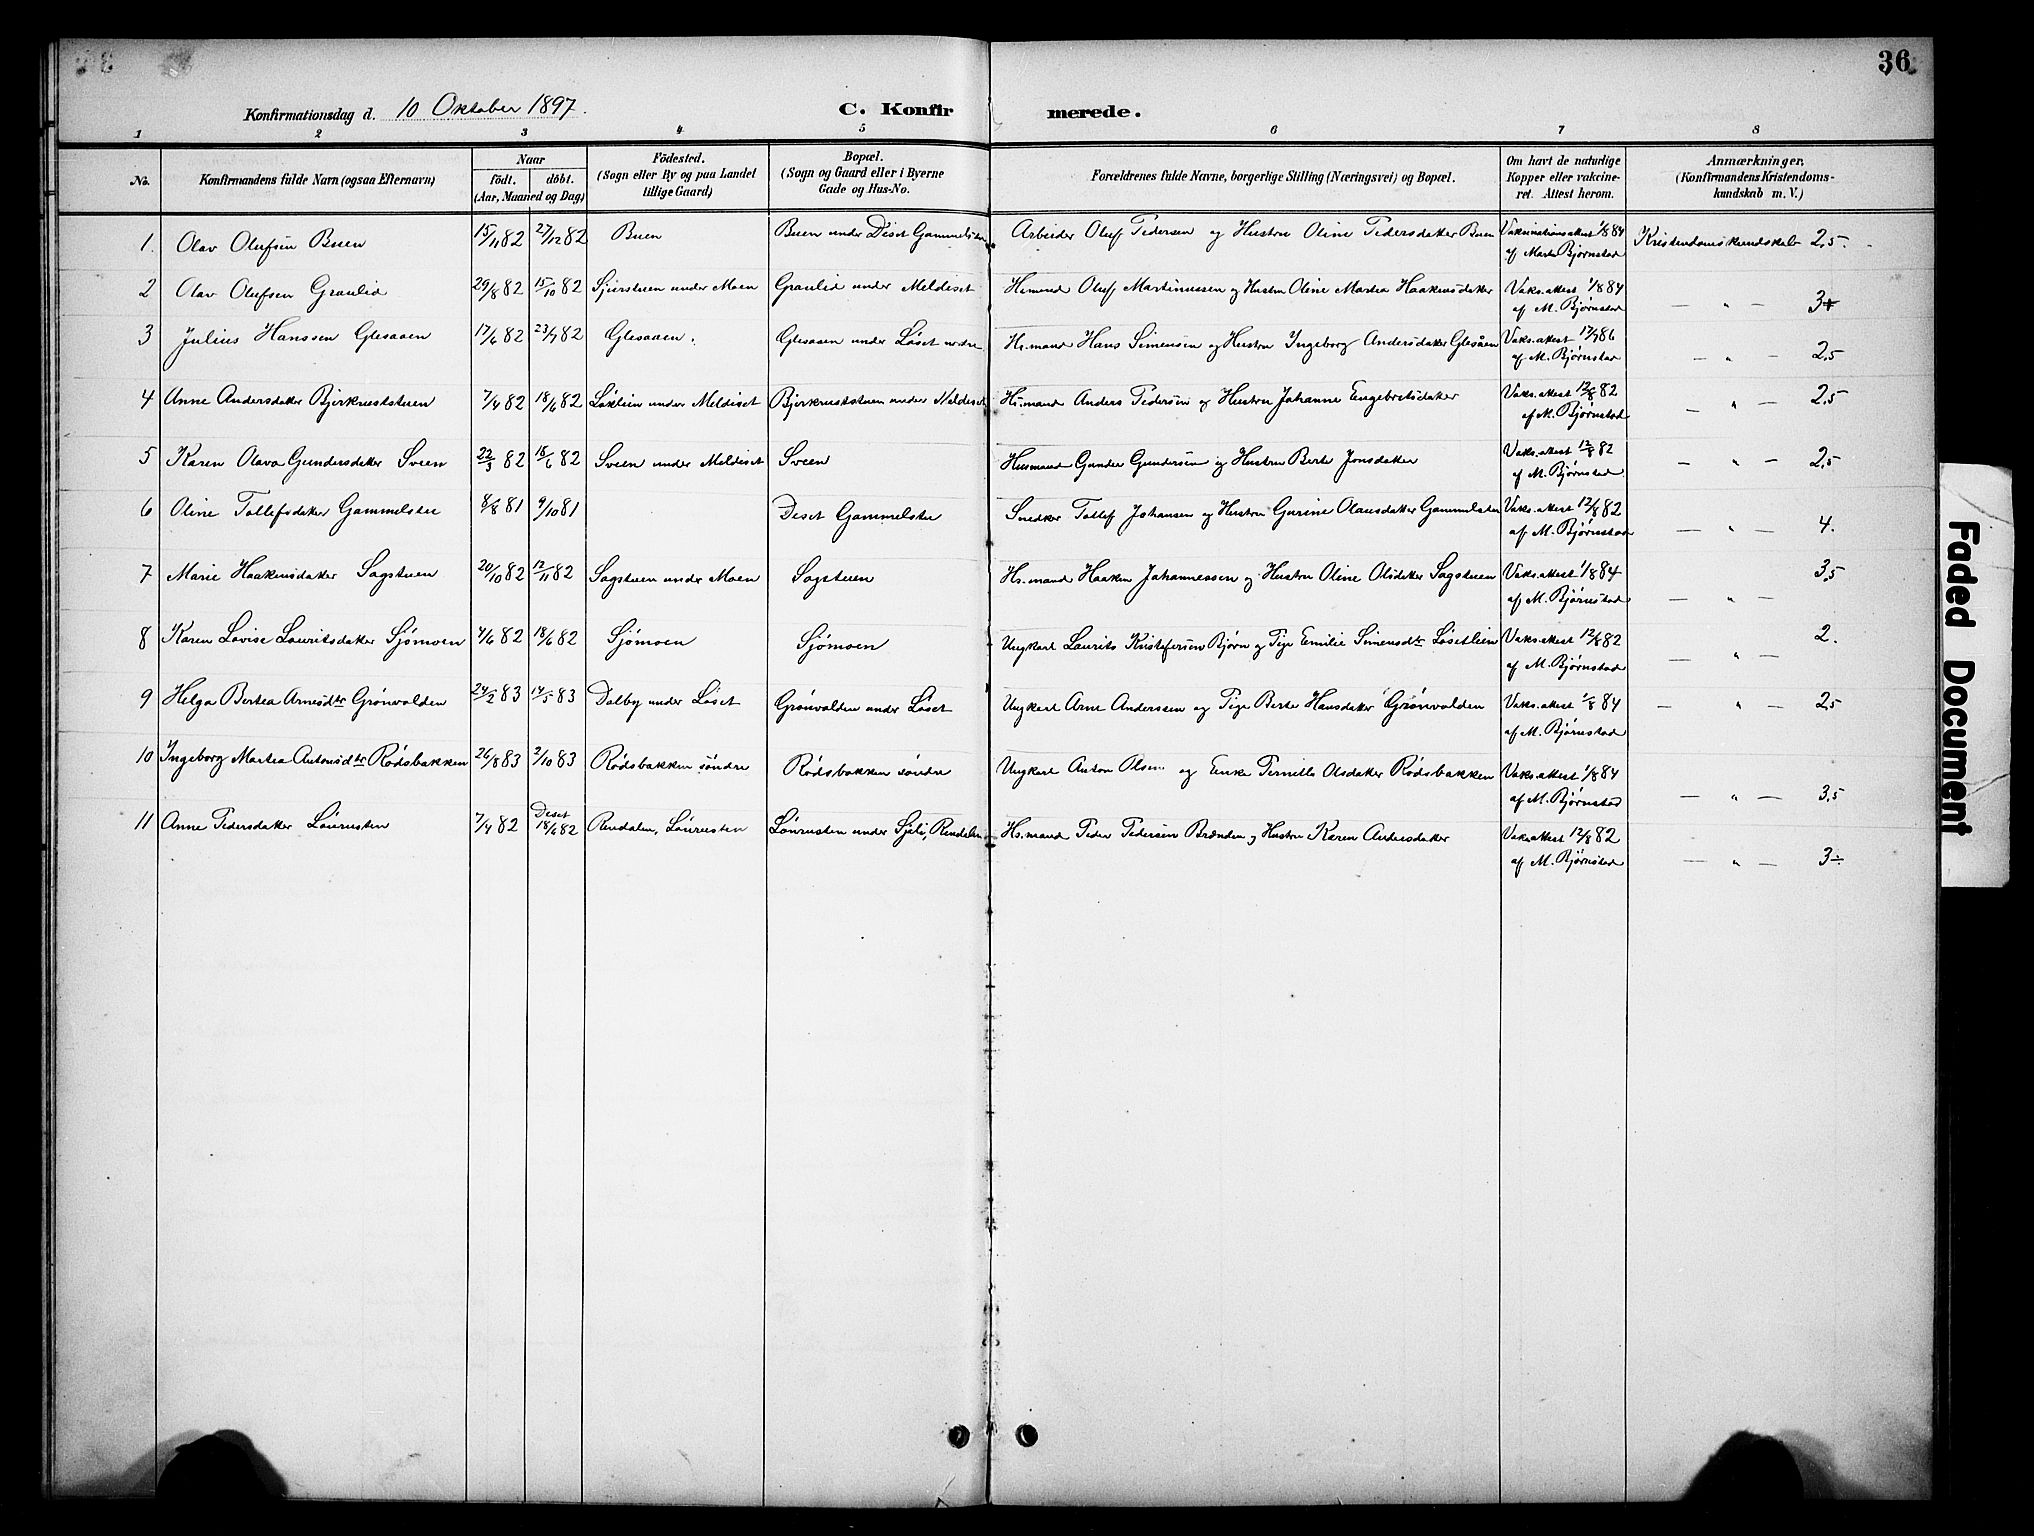 36
Konfirmationsdag d. 10 Oktober 1897.
C. Konfirmerede.
1 2 3 4 5 6 7 8
No.
Konfirmandens fulde Navn (ogsaa Efternavn)
Naar
födt. döbt.
(Aar, Maaned og Dag)
Födested.
(Sogn eller By og paa Landet
tillige Gaard)
Bopæl.
(Sogn og Gaard eller i Byerne
Gade og Hus-No.
Forældrenes fulde Navne, borgerlige Stilling (Næringsvei) og Bopæl.
Om havt de naturlige
Kopper eller vakcine-
ret. Attest herom.
Anmærkninger,
(Konfirmandens Kristendoms-
kundskab m. V.)
1. Olav Olufsen Buen 15/11 82 27/12 82 Buen Buen under Deset Gammelsten Arbeider Oluf Pedersen og Hustru Oline Pedersdatter Buen Vakcinationsattest 1/8 84 Kristendomskundskab 2,5.
af Marte Bjørnstad
2 Olav Olufsen Graulid 29/8 82 15/10 82 Sjierstuen under Moen Graulid under Meldeset Hsmand Oluf Martinussen og Hustru Oline Martea Haakensdatter Vaks.attest 1/8 84
af M. Bjørnstad — " — 3+
3 Julius Hanssen Glesaaen 17/6 82 23/7 82 Glesaaen. Glesaaen under Løset nordre Hs.mand Hans Simensen og Hustru Ingeborg Andersdatter Glesåen Vaks.attest 17/9 86
af M. Bjørnstad — " — 2,5
4 Anne Andersdatter Bjerkrustuen 7/4 82 18/6 82 Løklien under Meldeset Bjerkruststuen under Meldeset Hs.mand Anders Pedersen og Hustru Johanne Engebretsdatter Vaks.attest 12/8 82
af M. Bjørnstad — " — 2,5
5 Karen Olava Gundersdatter Sveen 22/3 82 18/6 82 Sveen under Meldeset Sveen Husmand Gunder Gundersen og Hustru Berte Jonsdatter Vaks.attest 12/8 82
af M. Bjørnstad. — " — 2,5
6 Oline Tollefsdatter Gammelsten 8/8 81 9/10 81 Deset Gammelsten Snedker Tollef Johansen og Hustru Gurine Olausdatter Gammelsten Vaks.attest 12/8 82
af M. Bjørnstad — " — 4.
7 Marie Haakensdatter Sagstuen 20/10 82 12/11 82 Sagstuen under Moen Sagstuen Hs.mand Haaken Johannessen og Hustru Oline Olsdatter Sagstuen Vaks.attest 1/8 84 3,5
af M. Bjørnstad — " —
8 Karen Lovise Lauritsdatter Sjømoen 4/6 82 18/6 82 Sjømoen Sjømoen Ungkarl Laurits Kristofersen Bjørn og Pige Emilie Simensdtr Løsetlien Vaks.attest 12/8 82 2.
af M. Bjørnstad — " —
9 Helga Bertea Arnesdtr Grønvolden 24/2 83 14/5 83 Dalby under Løset Grønvolden under Løset Ungkarl Arne Anderssen og Pige Berte Hansdatter Grønvolden Vaks.attest 1/8 84 — " — 2,5
af M. Bjørnstad
10 Ingeborg Martea Antonsdtr Rødsbakken 26/8 83 2/10 83 Rødsbakken søndre Rødsbakken søndre Ungkarl Anton Olsen og Enke Pernille Olsdatter Rødsbakken Vaks.attest 1/8 84
af M. Bjørnstad — " — 3,5
11 Anne Pedersdatter Lønrusten 7/4 82 Deset 18/6 82 Rendalen, Lønrusten Lønrusten under Sjøli, Rendalen Hs.mand Peder Pedersen Brænden og Hustru Karen Andersdatter Vaks.attest 12/8 82
af M. Bjørnstad — " — 3÷
Faded Document